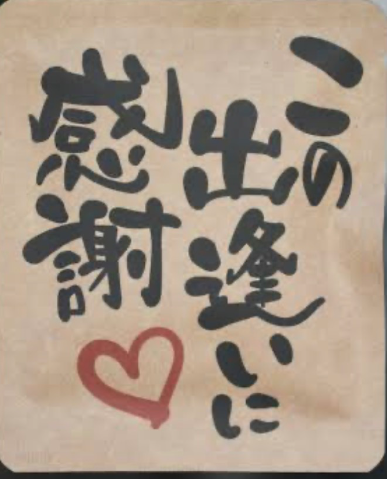 この
出逢いに
感謝